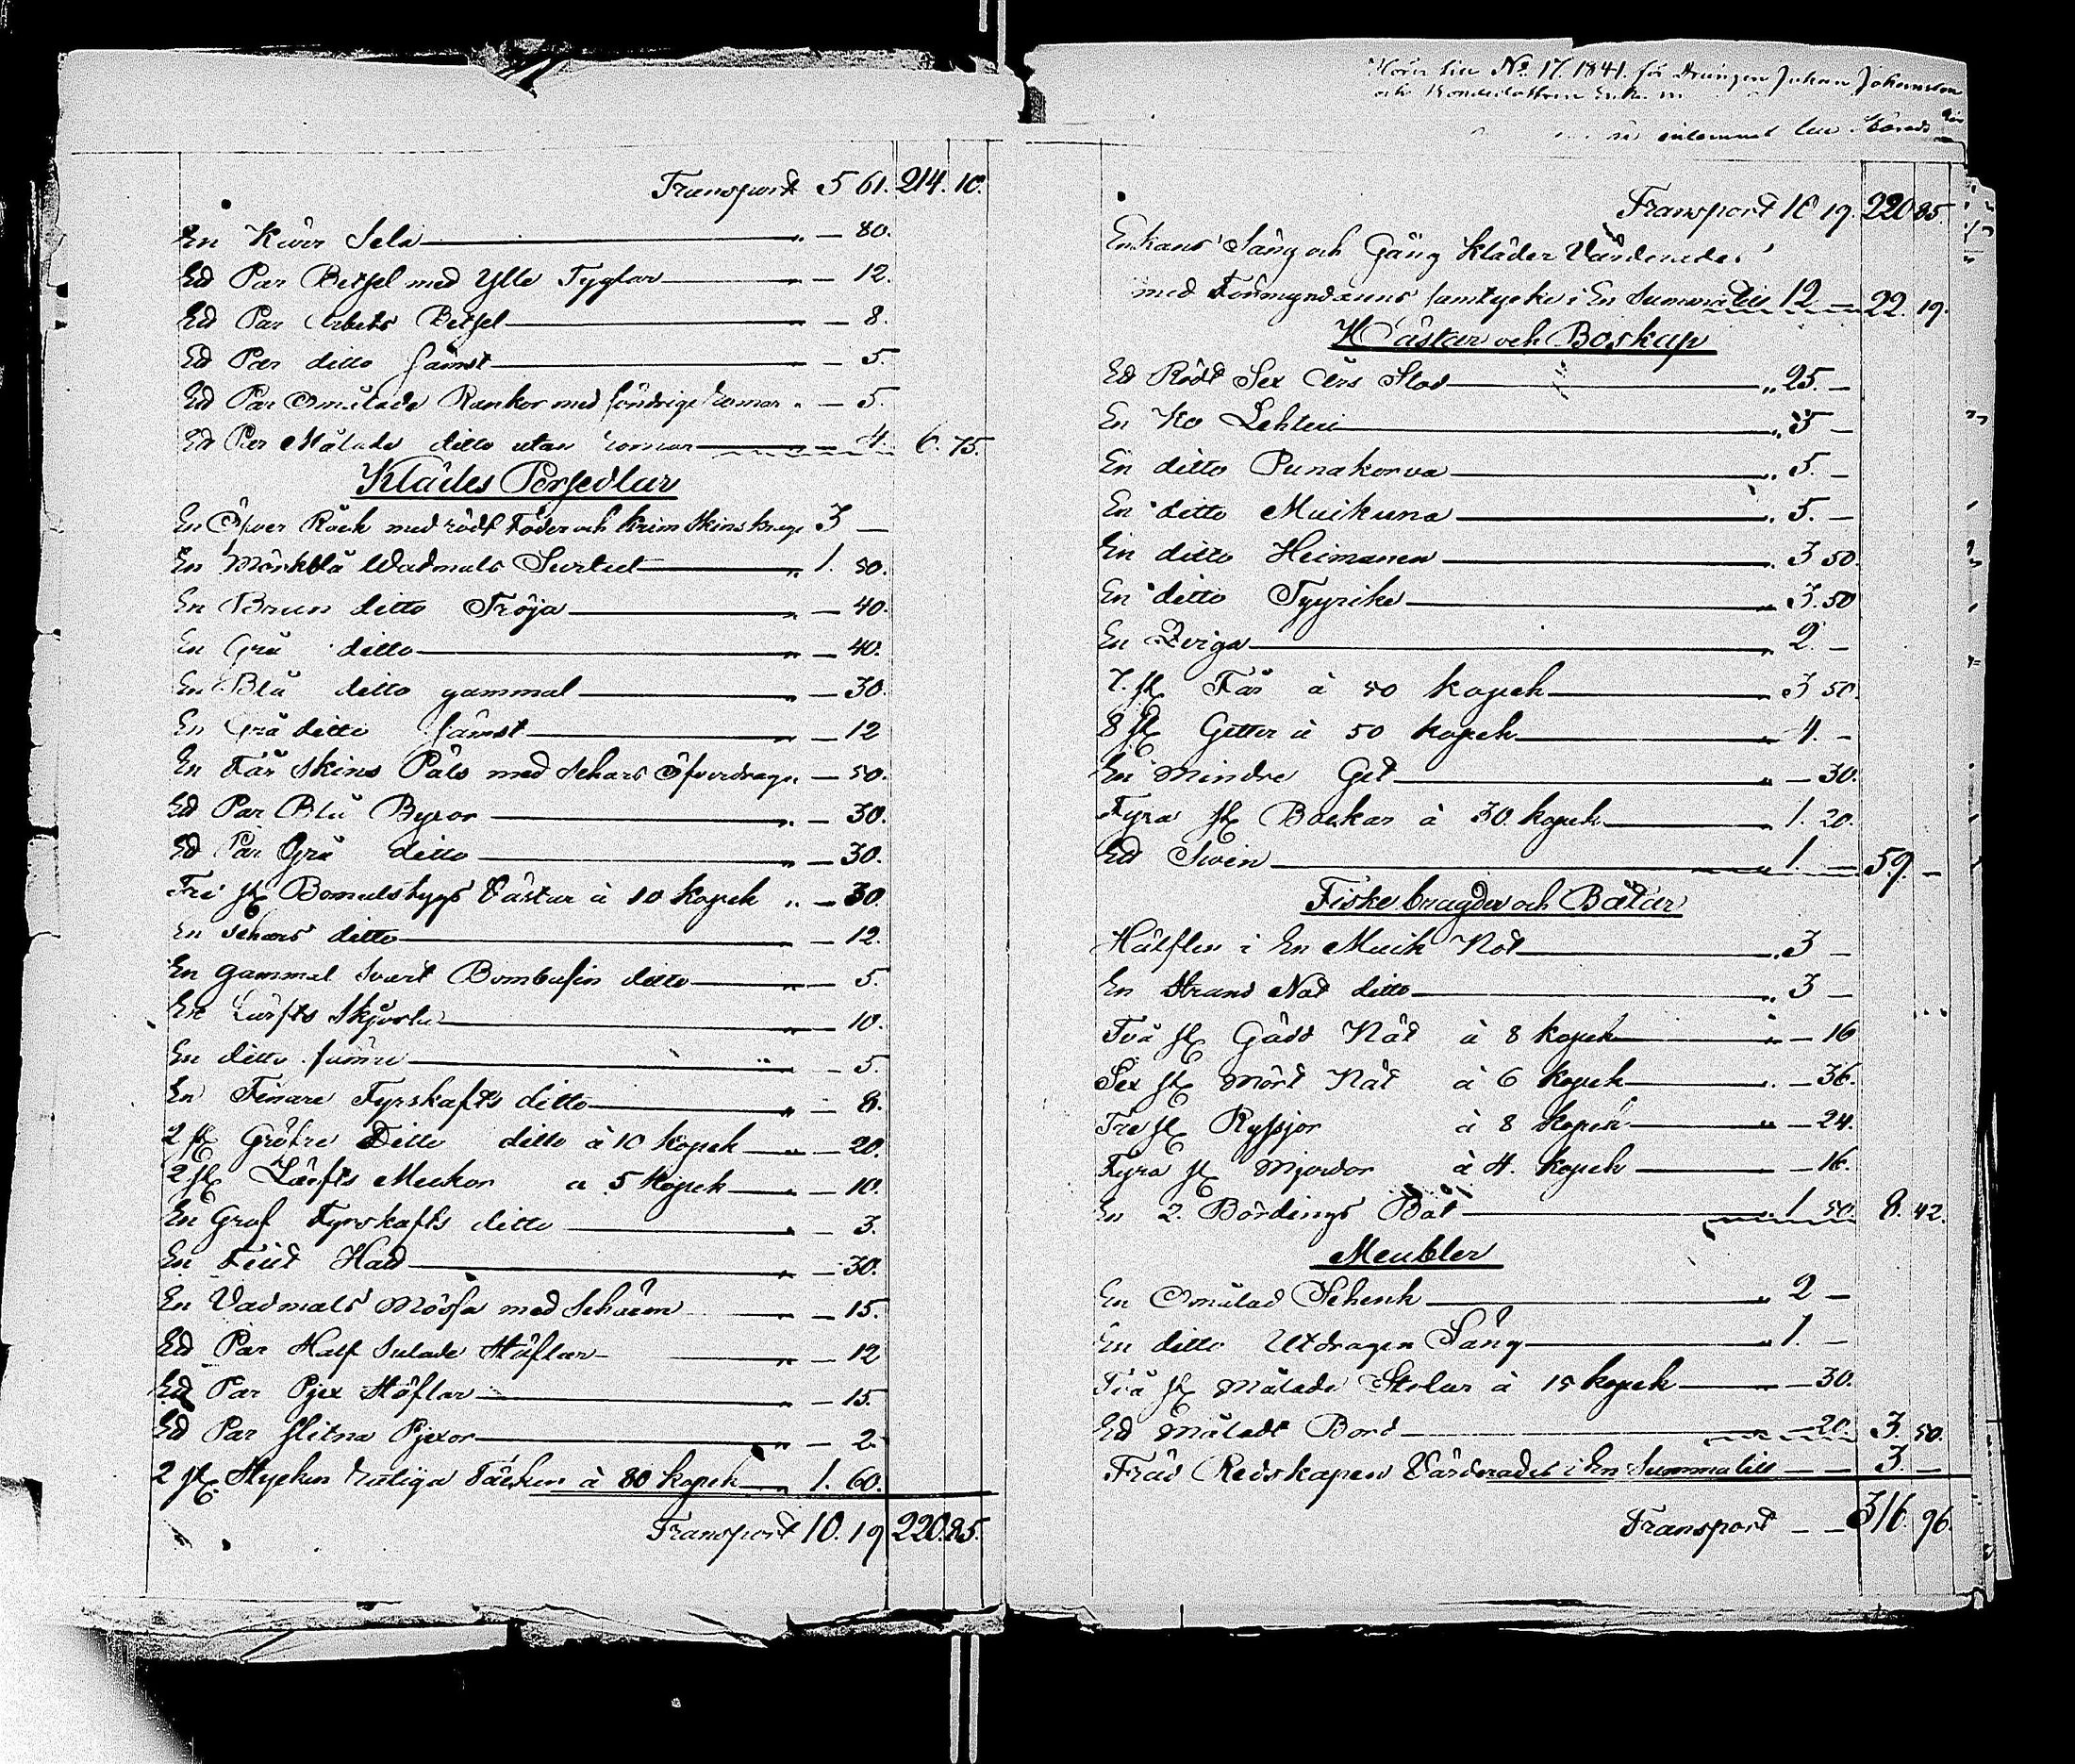 Transport 5 61. 214. 10.
En Kiörr Sela „ — 80.
Ed Par Betsel med Ylle Tyglar „ — 12.
Ed Par Arbets Betsel „ — 8.
Ed Par ditto sämst „ — 5.
Ed Par Omålade Rankor med söndrige Lomar „ — 5.
Ed Par Målade ditto utan Lomar — 4. 6. 75.
Klädes Persedlar
En Öfver Råck med rödt Foder och Krimskins krage 3 —
En Mörkblå Wadmals Surtut „ 1. 50.
En Brun ditto Tröja „ — 40.
En Grå ditto „ — 40.
En Blå ditto gammal „ — 30.
En Grå ditto sämst „ — 12
En Får Skins Päls med Schars Öfverdrag „ — 50.
Ed Par Blå Byxor „ — 30.
Ed Par Grå ditto „ — 30.
Tre st Bomulstygs Västar à 10 kopek „ — 30.
En Schars ditto „ — 12.
En gammal Svart Bombasin ditto „ — 5.
En Lärfts Skjorta „ — 10.
En ditto sämre „ — 5.
En Finare Fyrskafts ditto „ — 8.
2 st Gröfre Ditto ditto à 10 kopek „ — 20.
2 st Lärfts Muckor a 5 Kopek „ — 10.
En Grof Fyrskafts ditto „ — 3.
En Filt Hatt „ — 30.
En Vadmals Mössa med Schärm „ — 15.
Ed Par Half Sulade Stöflar „ — 12
Ed Par Pjex Stöflar „ — 15.
Ed Par slitna Pjexor „ — 2
2 st. Stycken Luliga Täcken à 80 kopek „ 1. 60.
Transport 10. 19 220. 85.
No 17. 1841. för Drängen Johan Johansson
och
Transport 10 19. 220 85.
Enkans Säng och Gång Kläder Värderades
med Förmyndarens samtycke i En Summa till 12 — 22. 19.
Hästar och Boskap
Ed Rödt Sex Års Stod „ 25. —
En Ko Lehteri „ 5 —
En ditto Punakorva „ 5. —
En ditto Muikuna „ 5. —
En ditto Heimanen „ 3 50.
En ditto Tyyrike „ 3. 50
En Qviga „ 2. —
7. st Får à 50 kopek „ 3 50.
8 st Getter à 50 kopek „ 4. —
En Mindre Get „ — 30.
Fyra st Bockar à 30 kopek „ 1. 20.
Ed Svin „ 1. — 59. —
Fiskebragder och Båtar
Hälften i En Muik Not „ 3 —
En Strand Not ditto „ 3 —
Två st Gädd Nät à 8 kopek „ — 16
Sex st Mört Nät à 6 kopek „ — 36.
Tre st Ryssjor à 8 kopek „ — 24.
Fyra st Mjerdor à 4. kopek — 16.
En 2. Bördings Båt „ 1 50. 8. 42.
Meubler
En Omålad Schenk „ 2 —
En ditto Utdragen Säng „ 1. —
Två st Målade Stolar à 15 kopek — 30.
Ed Måladt Bord — 20. 3. 50.
Träd Redskapen Värderades i En Summa till — — 3. —
Transport — — 316. 96.